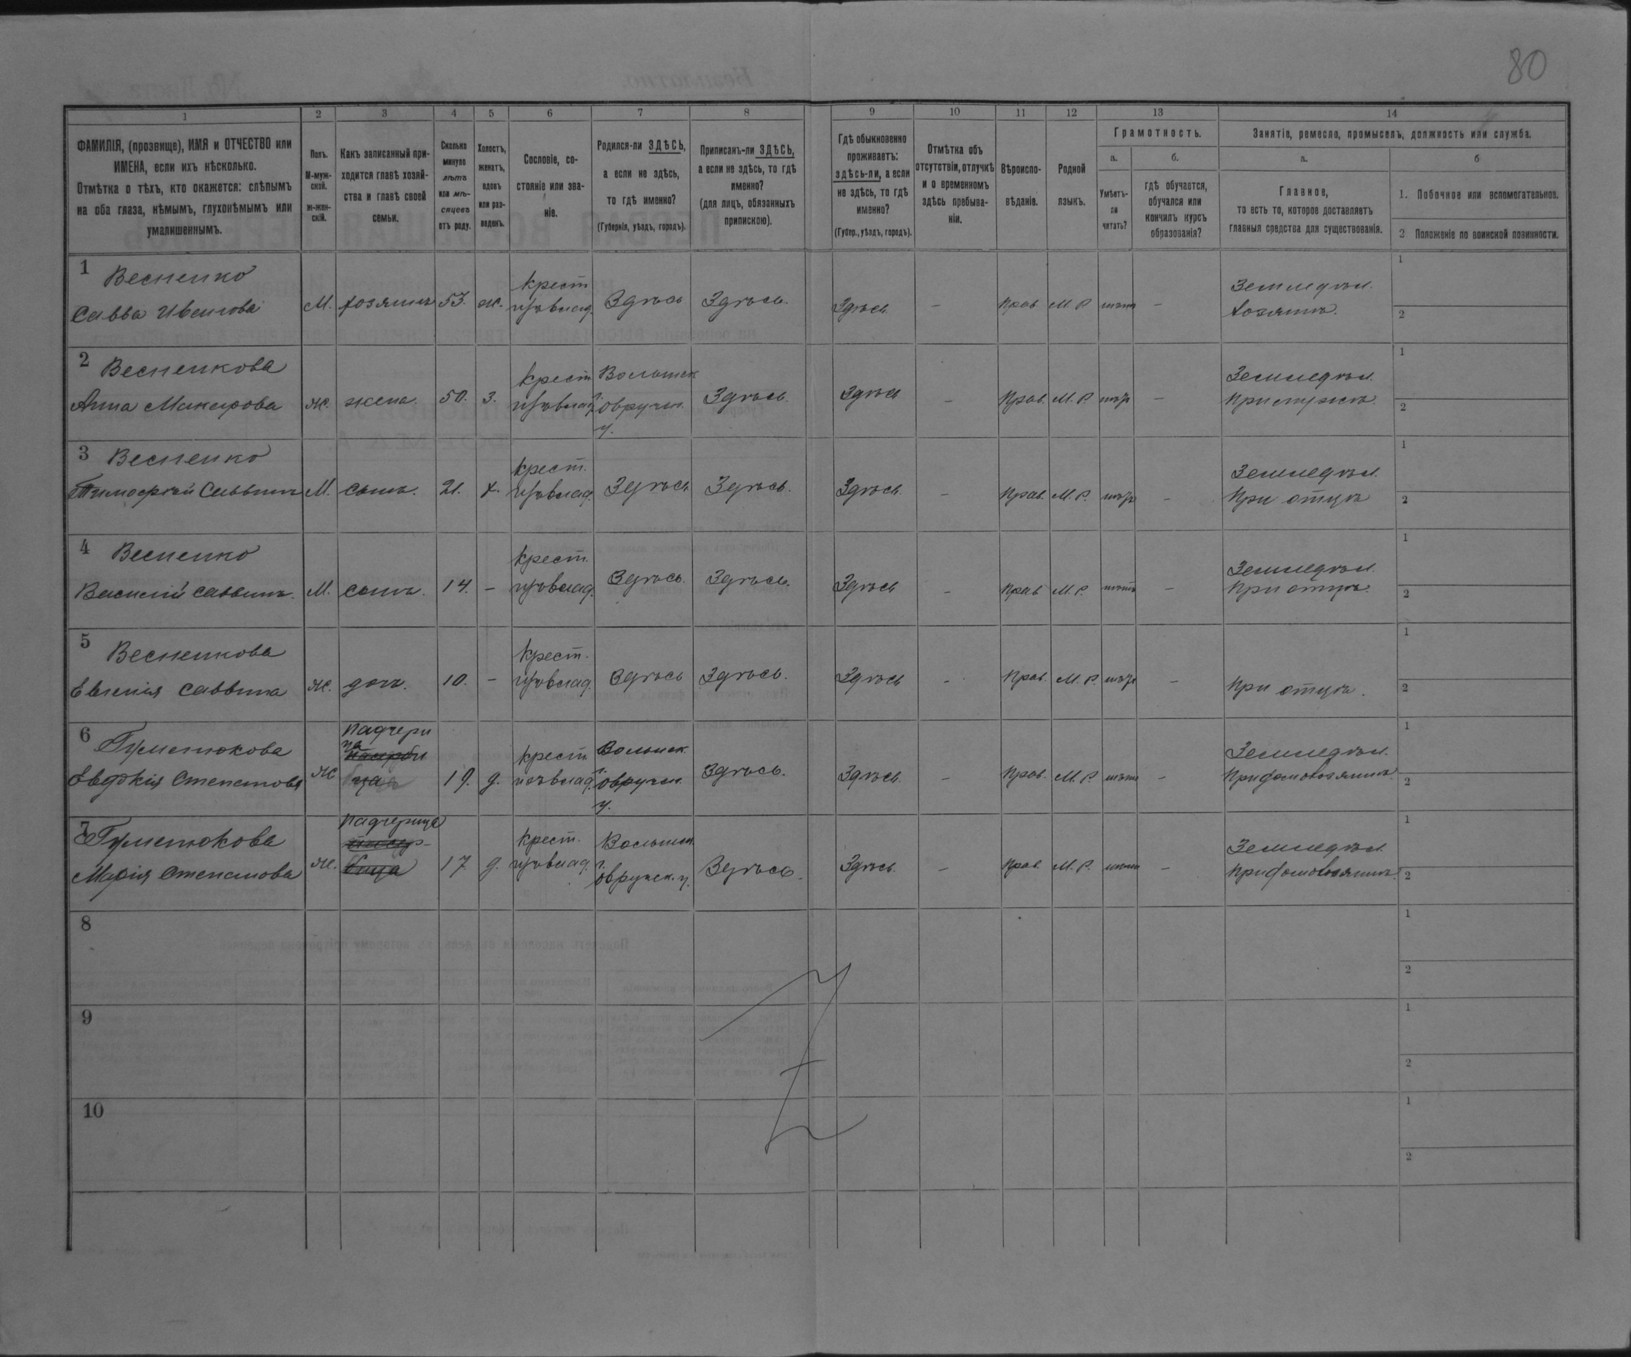 80
1 2 3 4 5 6 7 8 9 10 11 12 13 14
ФАМИЛІЯ, (прозвище), ИМЯ и ОТЧЕСТВО или
ИМЕНА, если ихъ нѣсколько.
Отмѣтка о тѣхъ, кто окажется: слѣпымъ
на оба глаза, нѣмымъ, глухонѣмымъ или
умалишеннымъ.
Полъ.
М-муж-
ской.
ж-жен-
скій.
Какъ записанный при-
ходится главѣ хозяй-
ства и главѣ своей
семьи.
Сколько
минуло
лѣтъ
или мѣ-
сяцевъ
отъ роду.
Холостъ,
женатъ,
вдовъ
или раз-
веденъ.
Сословіе, со-
стояніе или зва-
ніе.
Родился-ли ЗДѢСЬ,
а если не здѣсь,
то гдѣ именно?
(Губернія, уѣздъ, городъ).
Приписанъ-ли ЗДѢСЬ,
а если не здѣсь, то гдѣ
именно?
(для лицъ, обязанныхъ
припискою).
Гдѣ обыкновенно
проживаетъ:
здѣсь-ли, а если
не здѣсь, то гдѣ
именно?
(Губер., уѣздъ, городъ).
Отмѣтка объ
отсутствіи, отлучкѣ
и о временномъ
здѣсь пребыва-
ніи.
Вѣроиспо-
вѣданіе.
Родной
языкъ.
Грамотность.
а.
Умѣетъ-
ли
читать?
б.
гдѣ обучается,
обучался или
кончилъ курсъ
образованія?
Занятіе, ремесло, промыселъ, должность или служба.
а.
Главное,
то есть то, которое доставляетъ
главныя средства для существованія.
б
1. Побочное или вспомогательное.
2 Положеніе по воинской повинности.
1 Весненко
Савва Ивановъ М. хозяинъ 53. ж.
крест
Здѣсь Здѣсь. Здѣсь – Прав М. Р. нѣтъ –
Земледѣл.
Хозяинъ.
1
2
2 Весненкова
Анна Макарова ж. жена. 50. З.
крест
Волынск
овручск.
у.
Здѣсь. Здѣсь – Прав. М. Р. –
Земледѣл.
При мужѣ.
1
2
3 Весненко
Тимофей Саввинъ М. сынъ. 21. х.
крест.
Здѣсь Здѣсь. Здѣсь – Прав. М. Р. –
Земледѣл.
При отцѣ
1
2
4 Весненко
Василій Саввинъ. М. сынъ. 14. –
крест.
Здѣсь. Здѣсь. Здѣсь – Прав М. Р. нѣтъ –
Земледѣл.
При отцѣ.
1
2
5 Весненкова
Евгенія Саввина ж. доч. 10. –
крест.
Здѣсь Здѣсь. Здѣсь – Прав. М. Р. –
При отцѣ.
1
2
6 Гуменюкова
Евдокія Степанова ж
Падчери
ца
19. д.
крест
Волынск
г.
овручск.
у.
Здѣсь. Здѣсь – Прав. М. Р. нѣтъ –
Земледѣл.
При домовозяинѣ
1
2
7 Гуменюкова
Марія Степанова ж.
Падчерица
17 д.
крест.
Волынск
г.
овручск. у.
Здѣсь. Здѣсь. – Прав М. Р. –
Земледѣл
При домовозяинѣ.
1
2
8
1
2
9
1
2
10
1
2